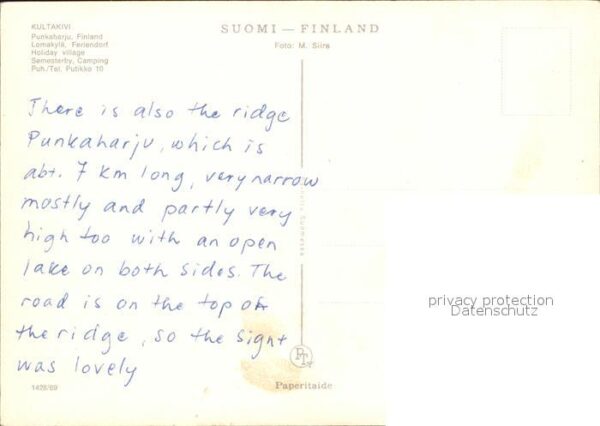 KULTAKIVI
Punkaharju, Finland
Lomakylä, Feriendorf
Holiday village
Semesterby, Camping
Puh./Tel. Putikko 10
SUOMI — FINLAND
Foto: M. Siira
There is also the ridge
Punkaharju, which is
abt. 7 km long, very narrow
mostly and partly very
high too with an open
lake on both sides. The
road is on the top of
the ridge, so the sight
was lovely
1428/69
PT
Paperitaide
privacy protection
Datenschutz